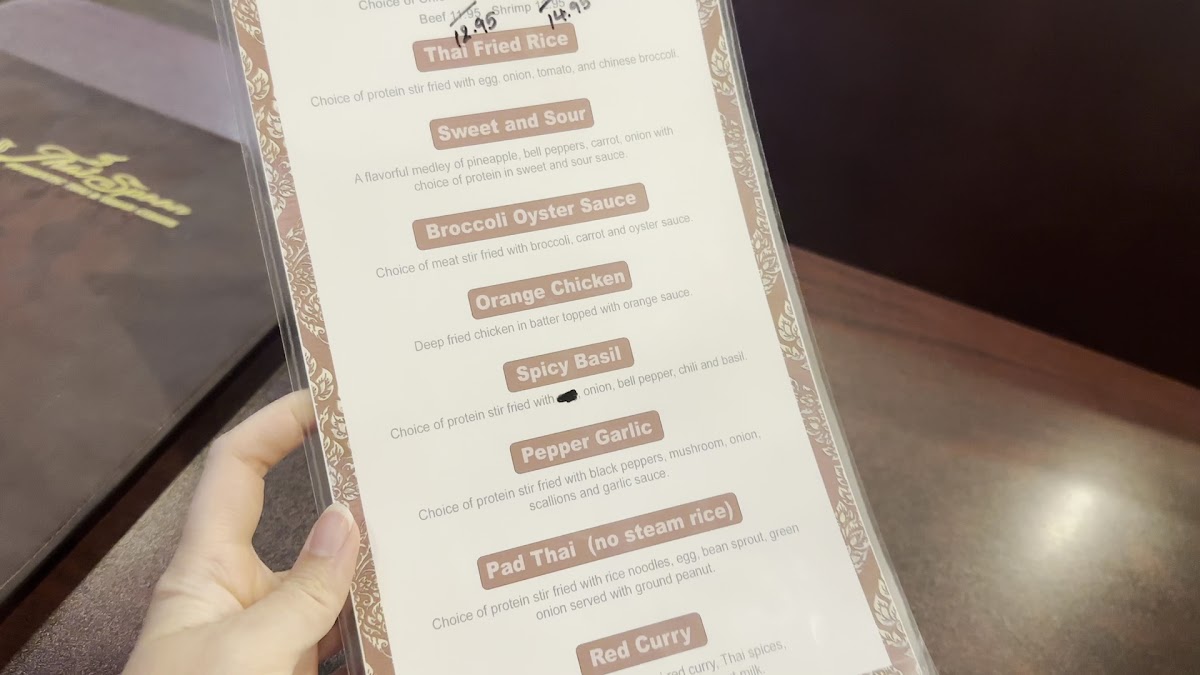 Choice of
Beef 11.95 Shrimp
12.95 14.95
Thai Fried Rice
Choice of protein stir fried with egg. onion, tomato, and chinese broccoli.
Sweet and Sour
A flavorful medley of pineapple, bell peppers, carrot, onion with
choice of protein in sweet and sour sauce.
Broccoli Oyster Sauce
Choice of meat stir fried with broccoli, carrot and oyster sauce.
Orange Chicken
Deep fried chicken in batter topped with orange sauce.
Spicy Basil
Choice of protein stir fried with , onion, bell pepper, chili and basil.
Pepper Garlic
Choice of protein stir fried with black peppers, mushroom, onion,
scallions and garlic sauce.
Pad Thai (no steam rice)
Choice of protein stir fried with rice noodles, egg, bean sprout, green
onion served with ground peanut.
Red Curry
red curry, Thai spices,
milk.